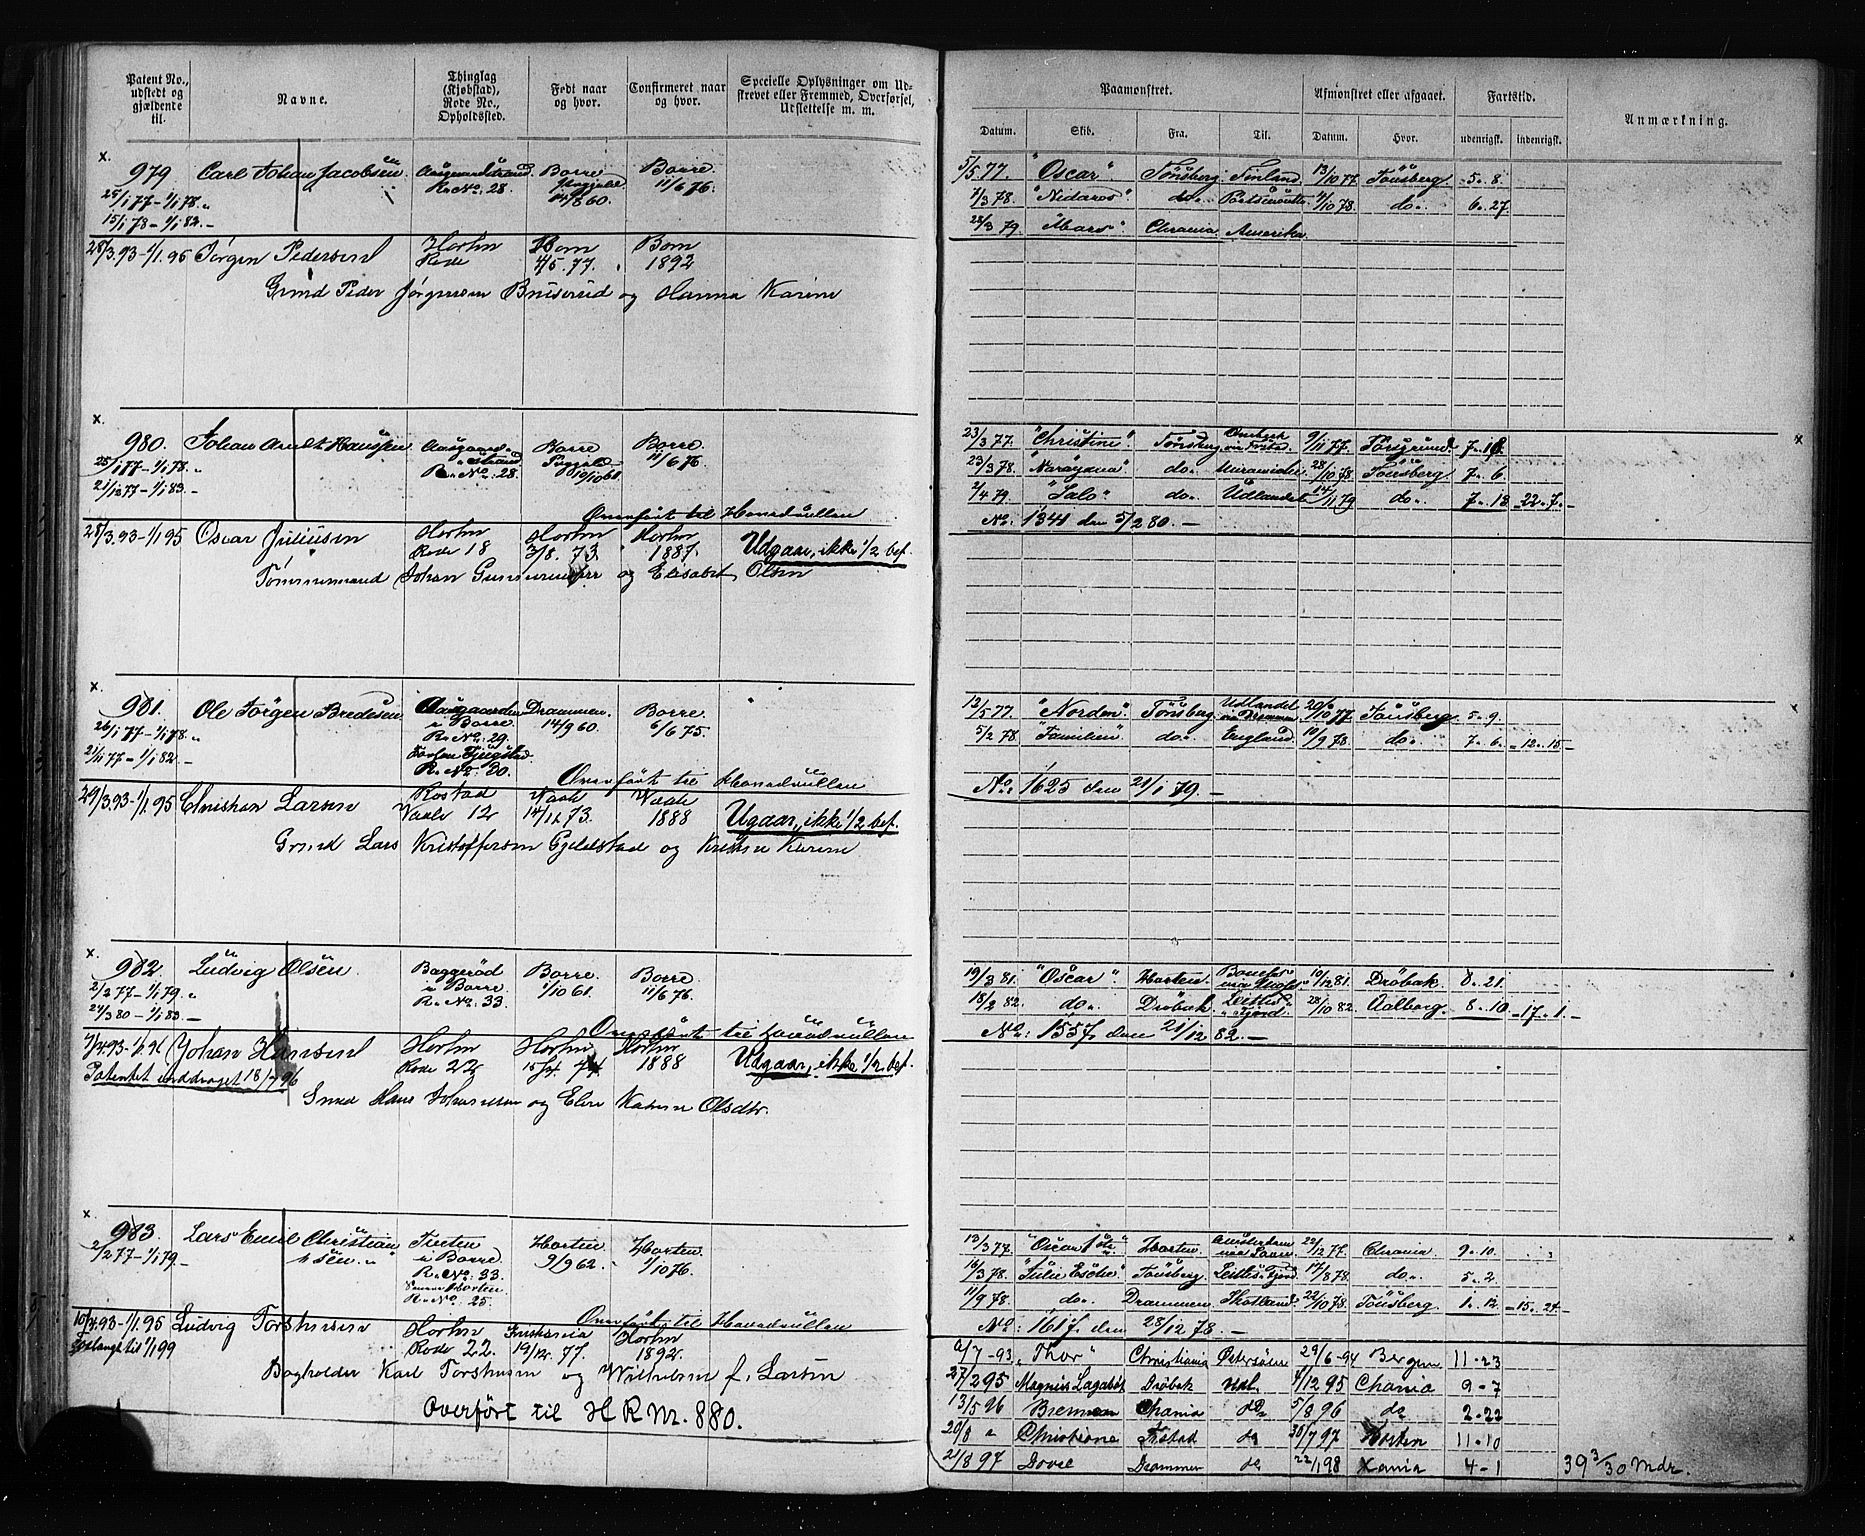 Patent No., udstedt og gjældende til.
Navne.
Thinglag (Kjøbstad), Rode No., Opholdssted.
Født naar og hvor.
Confirmeret naar og hvor.
Specielle Oplysninger om Udskrevet eller Fremmed, Overførsel, Udslettelse m. m.
Paamønstret.
Datum. Skib. Fra. Til.
Afmønstret eller afgaaet.
Datum. Hvor.
Fartstid.
udenrigsk. indenrigsk.
Anmærkning.
x.
979 Carl Johan Jacobsen Aasgaardstrand Borre Borre
R. No. 28. 11/6 76.
25/1 77 - 1/1 78. "
15/1 78 - 1/1 82. -
5/5 77. "Oscar" Tønsberg Finland 13/10 77. Tønsberg. 5. 8.
7/3 78. "Nidaros" do. 4/10 78. do. 6. 27
28/3 79. "Mars" Chrania Amerika
28/3.93 - 1/1.95 Jørgen Pedersen Horten Born Born
Rode 4/5. 77. 1892
Grmd Peder Jørgensen Bruserud og Hanna Karine
x.
980. Johan Arndt Hanssen Aasgaardstrand Borre Borre
R. No. 28. 19/10 61 11/6 76.
25/1 77 - 1/1 78. "
21/12 77 - 1/1 83. -
Overført til Hovedrullen
23/3 77. "Christine" Tønsberg 9/11 77. Porsgrund. 7. 16.
23/3 78. "Narayana" do. 28/10 78. Tønsberg 7. 6
2/4 79. "Salo" do. Udlandet 14/11 79 do. 7. 18 22. 7. -
No. 1341 den 5/2 80. -
28/3.93 - 1/1 95 Oscar Juliusen Horten Horten Horten
Rode 18 3/8. 73. 1887. Udgaar, ikke 1/2 bef.
Tømmermand Johan Gummerusen og Elisabet Olsen
x.
981. Ole Jørgen Bredesen Aasgaarden Drammen. Borre
i Borre 14/9 60. 6/6 75.
R. No. 29.
R. No. 30.
26/1 77 - 1/1 78. "
21/11 77 - 1/1 82. -
Overført til Hovedrullen
12/5 77. "Norden" Tønsberg Udlandet via Drammen 20/10 77 Tønsberg 5. 9.
5/2 78. "Familien" do. England. 10/9 78 do. 7. 6. 12. 15 -
No. 1625 den 21/1 79. -
29/3.93 - 1/1.95 Christian Larsen Rostad Vaale Vaale
Vaale 12 14/11.73. 1888 Ugaar, ikke 1/2 bef.
Grmd Lars Kristoffersen Gjelstad og Kristin Karine
x.
982. Ludvig Olsen. Baggerød Borre. Borre
i Borre. 1/10 61. 11/6 76.
R. No. 33.
2/2 77 - 1/1 79. "
24/3 80 - 1/1 83. -
Overført til Hovedrullen
19/3 81. "Oscar" Horten. 10/12 81. Drøbak 8. 21
18/2 82. do. Drøbak 28/10 82. Aalborg. 8. 10 17. 1. -
No. 1557. den 21/12 82. -
7/4 93 - 1/1.96 Johan Hansen Horten Horten Horten
Rode 22 15/4. 74 1888 Udgaar, ikke 1/2 bef.
Patentet inddraget 18/7 96
Smed Hans Johansen og Elen Katrine Olsdtr.
x.
983. Lars Emil Christiansen. " Horten Horten.
i Borre. 9/9 62. 1/10 76.
R. No. 33.
Horten
R. No. 25.
2/2 77 - 1/1 79. -
Overført til Hovedrullen
13/3 77. "Oscar 1ste" Horten. Amsterdam 22/12 77. Chrania 9. 10.
16/3 78. "Julie Esche" Tønsberg. 17/8 78. do. 5. 2.
11/9 78. do. Drammen Skotland 22/10 78. Tønsberg. 1. 12 15. 24 -
No. 1617. den 28/12 78. -
10/4.93 - 1/1.95 Ludvig Torstensen Horten Kristiania Horten
Forlænget til 1/1 99 Rode 22. 19/12. 77. 1892.
Bogholder Karl Torstensen og Wilhelmine f. Larsen
Overført til H R Nr. 880.
2/7-93. "Thor" Christiania Østersøen 29/6-94 Bergen 11-23
27/2 95 Magnus Lagabøt Drøbak Udl. 4/12 95 Chania 9-7
13/5 96 Bremen Chania do 5/8 96 do 2-22
20/8 " Christiane Frstad do 30/7 97 Horten 11-10
21/8 97 Dovre Drammen do 22/1 98 Xania 4-1 39 3/30 Mdr.